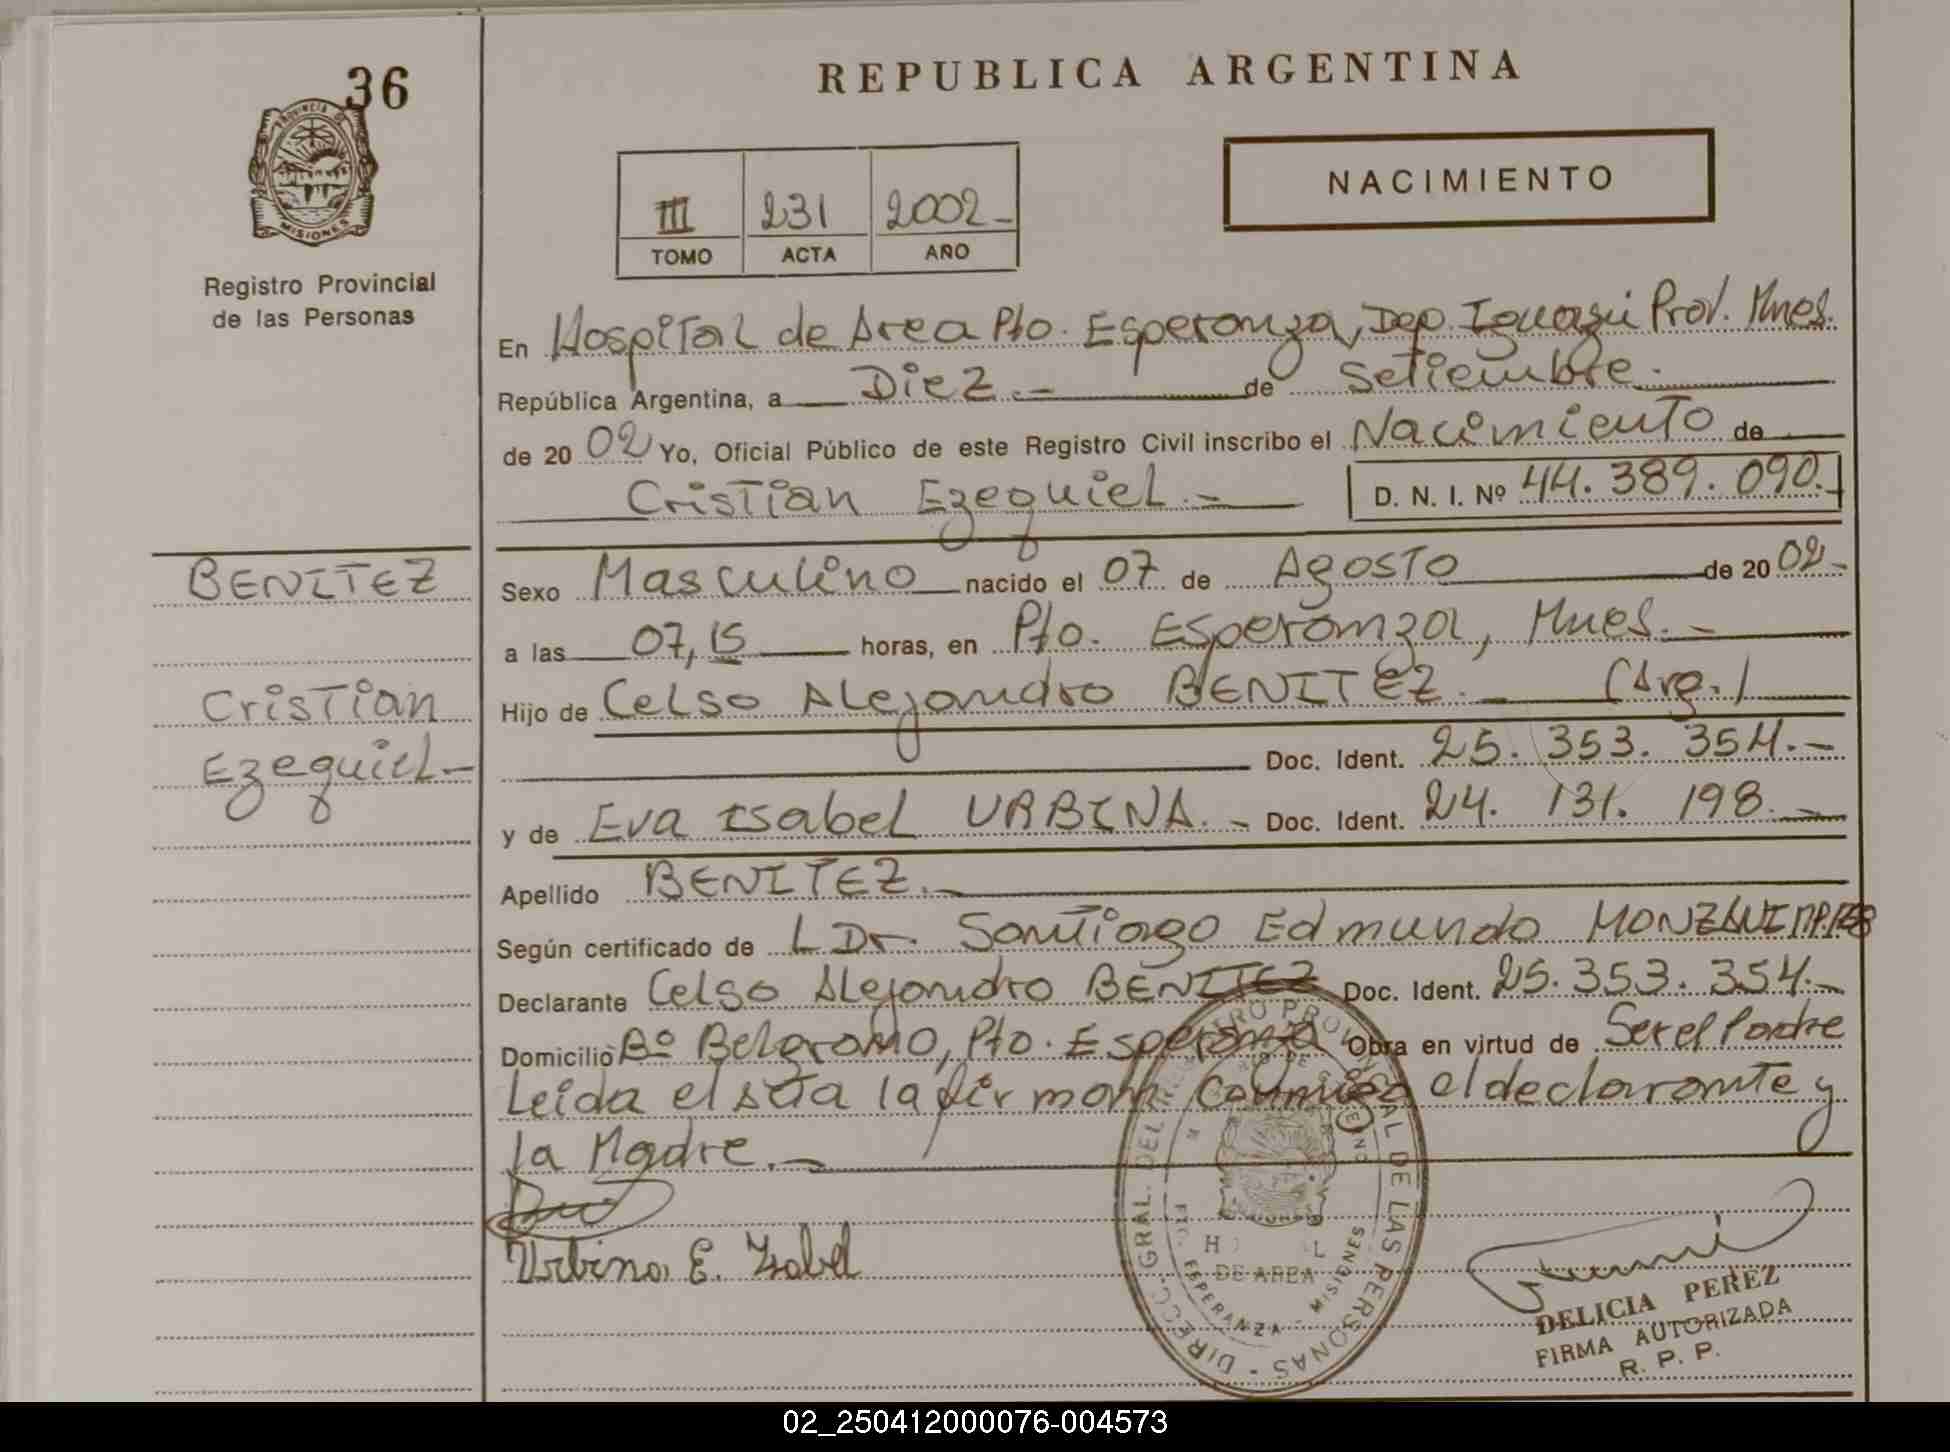 36
PROVINCIA DE
MISIONES
Registro Provincial
de las Personas
REPUBLICA ARGENTINA
NACIMIENTO
III 231 2002-
TOMO ACTA AÑO
En Hospital de Area Pto. Esperanza, Dep. Iguazú Prov. Mnes.
República Argentina, a Diez.- de Setiembre.
de 20 02 Yo, Oficial Público de este Registro Civil inscribo el Nacimiento de
Cristian Ezequiel.- D. N. I. Nº 44.389.090.
BENITEZ
Cristian
Ezequiel-
Sexo Masculino nacido el 07 de Agosto de 20 02-
a las 07,15 horas, en Pto. Esperanza, Mnes.-
Hijo de Celso Alejandro BENITEZ.- (Arg.)
Doc. Ident. 25.353.354.-
y de Eva Isabel URBINA.- Doc. Ident. 24.131.198.-
Apellido BENITEZ.-
Según certificado de L Dr. Santiago Edmundo MONZANI
Declarante Celso Alejandro BENITEZ Doc. Ident. 25.353.354.-
Domicilio Bº Belgrano, Pto. Esperanza Obra en virtud de Ser el Padre
Leida el Acta la firman conmigo el declarante y
la Madre.-
Urbina, E. Isabel
DIRECC. GRAL. DEL REGISTRO PROVINCIAL DE LAS PERSONAS
DE AREA
ESPERANZA - MISIONES
DELICIA PEREZ
FIRMA AUTORIZADA
R. P. P.
02_250412000076-004573